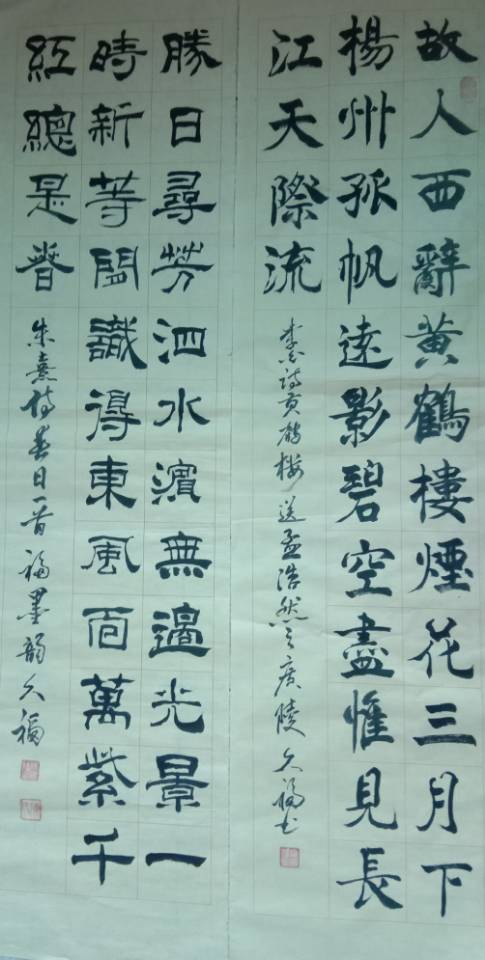 故人西辭黃鶴樓煙花三月下
楊州孤帆遠影碧空盡惟見長
江天際流
李白詩黃鶴樓送孟浩然之廣陵 久福书
勝日尋芳泗水濱無邊光景一
時新等閒識得東風面萬紫千
紅總是春
朱熹诗春日一首福墨韵久福